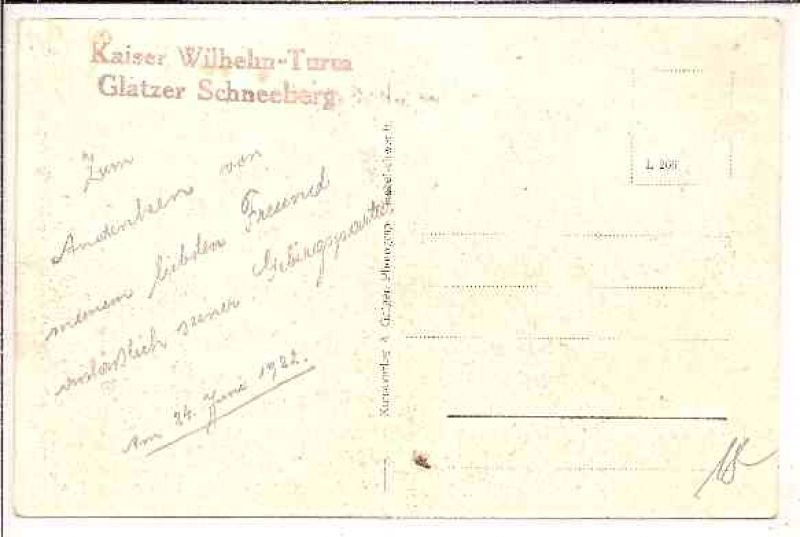 Kaiser Wilhelm-Turm
Glatzer Schneeberg
Zum
Andenken von
meinem liebsten Freund
anläßlich seiner Gebirgspartie.
Am 24. Juni 1922.
Kunstverlag A.
L 266